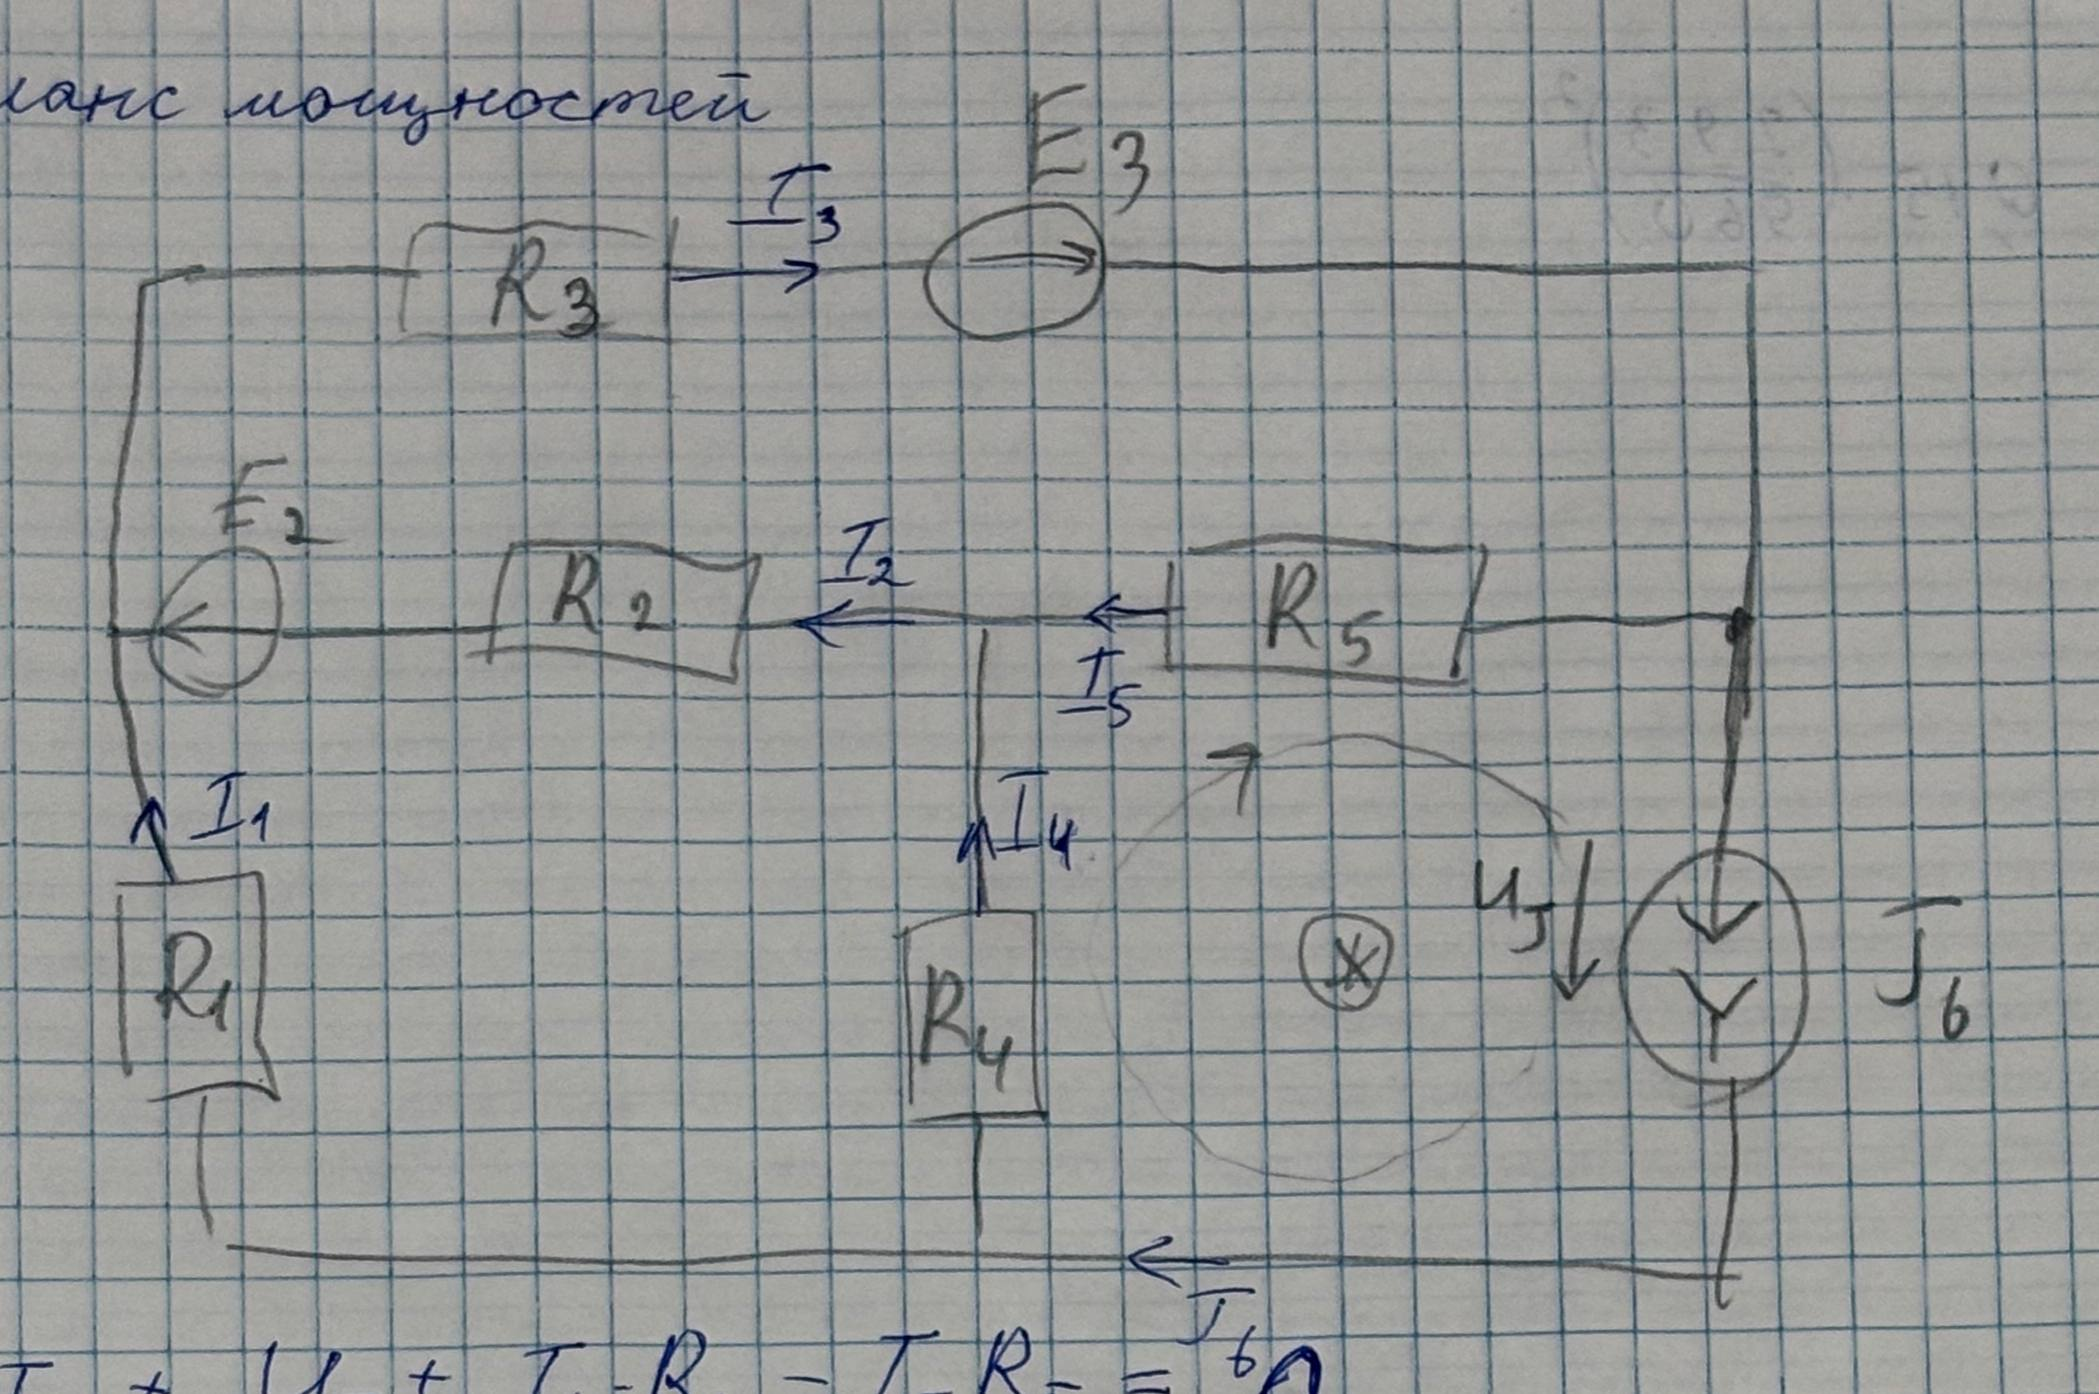 ланс мощностей
E3
I3
R3
E2
R2
I2
R5
I5
I1
I4
UJ
J6
R1
R4
J6
+ U + I R - I R = 0